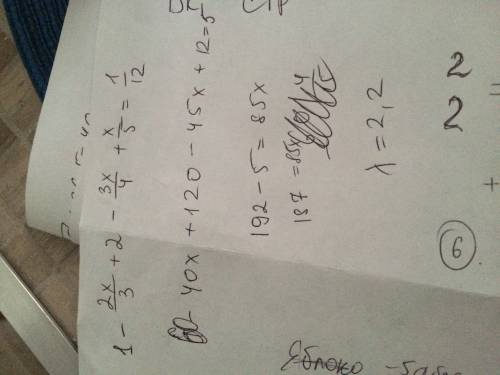 1 - 2x/3 + 2 - 3x/4 + x/5 = 1/12
60 - 40x + 120 - 45x + 12 = 5
192 - 5 = 85x
187 = 85x
x = 2,2
2
2
+
6
Яблоко